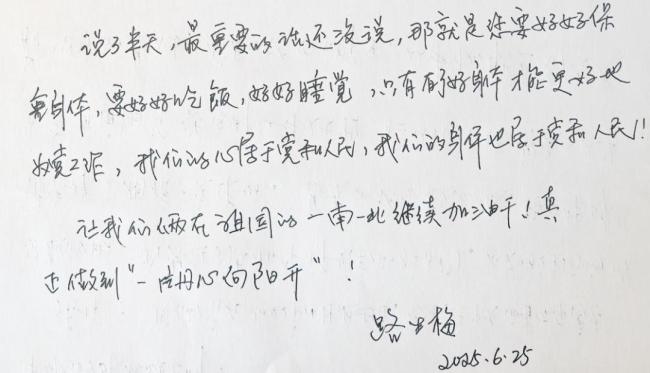 说了半天，最重要的话还没说，那就是您要好好保
重身体，要好好吃飯，好好睡觉，只有有了好身体才能更好地
为党工作，我们的心属于党和人民，我们的身体也属于党和人民！
让我们俩在祖国的一南一北继续加油干！真
正做到“一片丹心向阳开”！
路生梅
2025.6.25